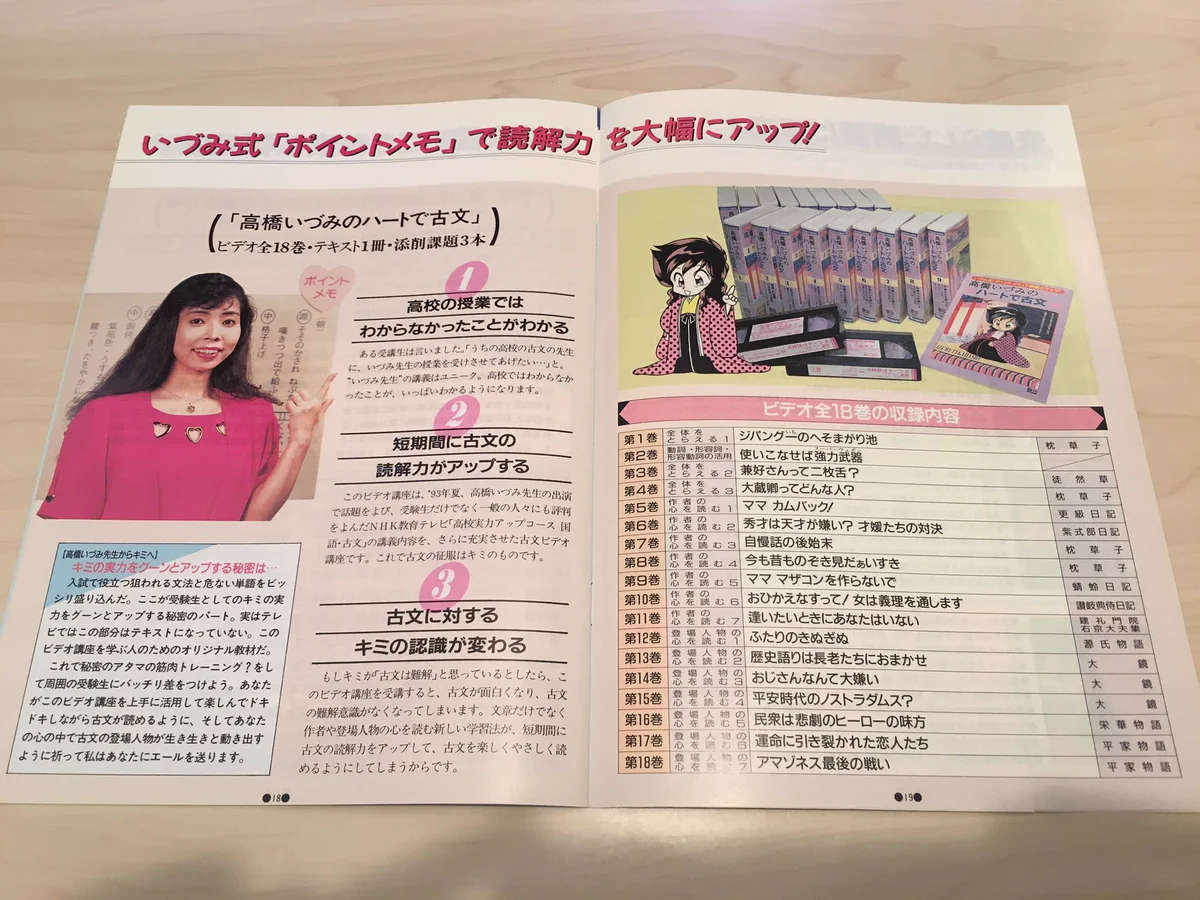 いづみ式「ポイントメモ」で読解力を大幅にアップ!
「高橋いづみのハートで古文」
ビデオ全18巻・テキスト1冊・添削課題3本
ポイント
メモ
1
高校の授業では
わからなかったことがわかる
ある受講生は言いました。「うちの高校の古文の先生
に、いづみ先生の授業を受けさせてあげたい…」と。
“いづみ先生”の講義はユニーク。高校ではわからなか
ったことが、いっぱいわかるようになります。
2
短期間に古文の
読解力がアップする
このビデオ講座は、'93年夏、高橋いづみ先生の出演
で話題をよび、受験生だけでなく一般の人々にも評判
をよんだNHK教育テレビ「高校実力アップコース 国
語・古文」の講義内容を、さらに充実させた古文ビデオ
講座です。これで古文の征服はキミのものです。
3
古文に対する
キミの認識が変わる
もしキミが「古文は難解」と思っているとしたら、こ
のビデオ講座を受講すると、古文が面白くなり、古文
の難解意識がなくなってしまいます。文章だけでなく
作者や登場人物の心を読む新しい学習法が、短期間に
古文の読解力をアップして、古文を楽しくやさしく読
めるようにしてしまうからです。
【高橋いづみ先生からキミへ】
キミの実力をグーンとアップする秘密は…
入試で役立つ狙われる文法と危ない単語をビッ
シリ盛り込んだ。ここが受験生としてのキミの実
力をグーンとアップする秘密のパート。実はテレ
ビではこの部分はテキストになっていない。この
ビデオ講座を学ぶ人のためのオリジナル教材だ。
これで秘密のアタマの筋肉トレーニング?をし
て周囲の受験生にバッチリ差をつけよう。あなた
がこのビデオ講座を上手に活用して楽しんでドキ
ドキしながら古文が読めるように、そしてあなた
の心の中で古文の登場人物が生き生きと動き出す
ように祈って私はあなたにエールを送ります。
●18●
高橋いづみの
ハートで古文
ビデオ全18巻の収録内容
第1巻 全体をとらえる1 ジパングーのへそまがり池 枕草子
第2巻 動詞・形容詞・形容動詞の活用 使いこなせば強力武器
第3巻 全体をとらえる2 兼好さんって二枚舌? 徒然草
第4巻 全体をとらえる3 大蔵卿ってどんな人? 枕草子
第5巻 作者の心を読む1 ママ カムバック! 更級日記
第6巻 作者の心を読む2 秀才は天才が嫌い? 才媛たちの対決 紫式部日記
第7巻 作者の心を読む3 自慢話の後始末 枕草子
第8巻 作者の心を読む4 今も昔ものぞき見だぁいすき 枕草子
第9巻 作者の心を読む5 ママ マザコンを作らないで 蜻蛉日記
第10巻 作者の心を読む6 おひかえなすって! 女は義理を通します 讃岐典侍日記
第11巻 作者の心を読む7 逢いたいときにあなたはいない 建礼門院右京大夫集
第12巻 登場人物の心を読む1 ふたりのきぬぎぬ 源氏物語
第13巻 登場人物の心を読む2 歴史語りは長老たちにおまかせ 大鏡
第14巻 登場人物の心を読む3 おじさんなんて大嫌い 大鏡
第15巻 登場人物の心を読む4 平安時代のノストラダムス? 大鏡
第16巻 登場人物の心を読む5 民衆は悲劇のヒーローの味方 栄華物語
第17巻 登場人物の心を読む6 運命に引き裂かれた恋人たち 平家物語
第18巻 登場人物の心を読む7 アマゾネス最後の戦い 平家物語
●19●